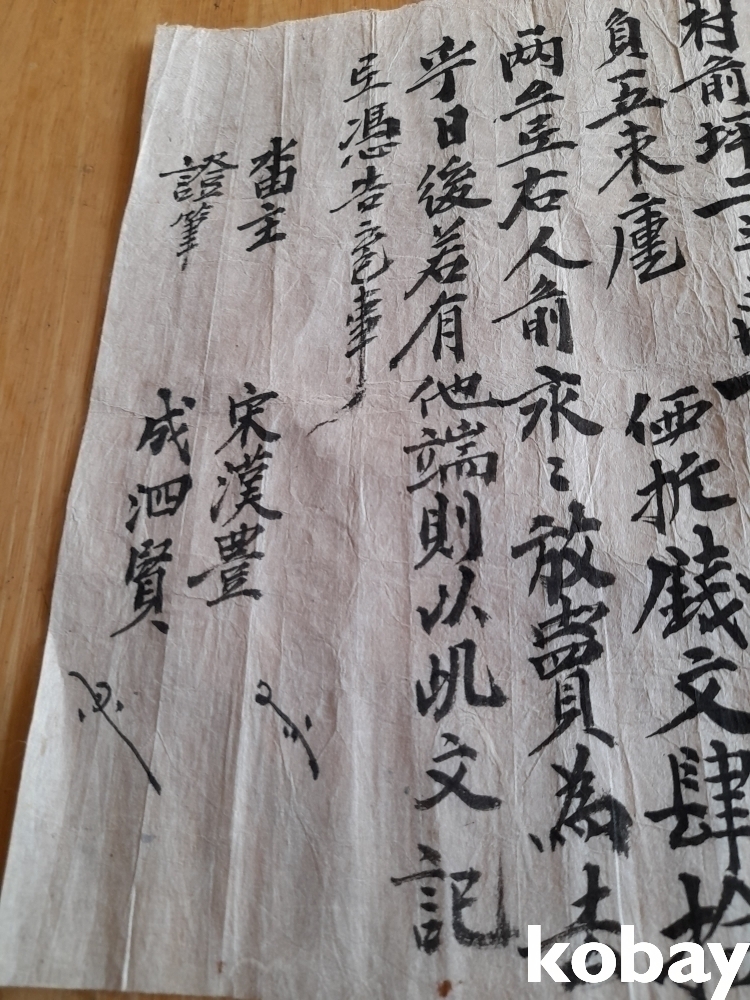 村前坪二
負五束庫 価折錢文肆拾
兩 右人前永〻放賣為去
乎日後若有他端則以此文記
憑告官事
畓主 宋漢豊
證筆 成泗賢
kobay